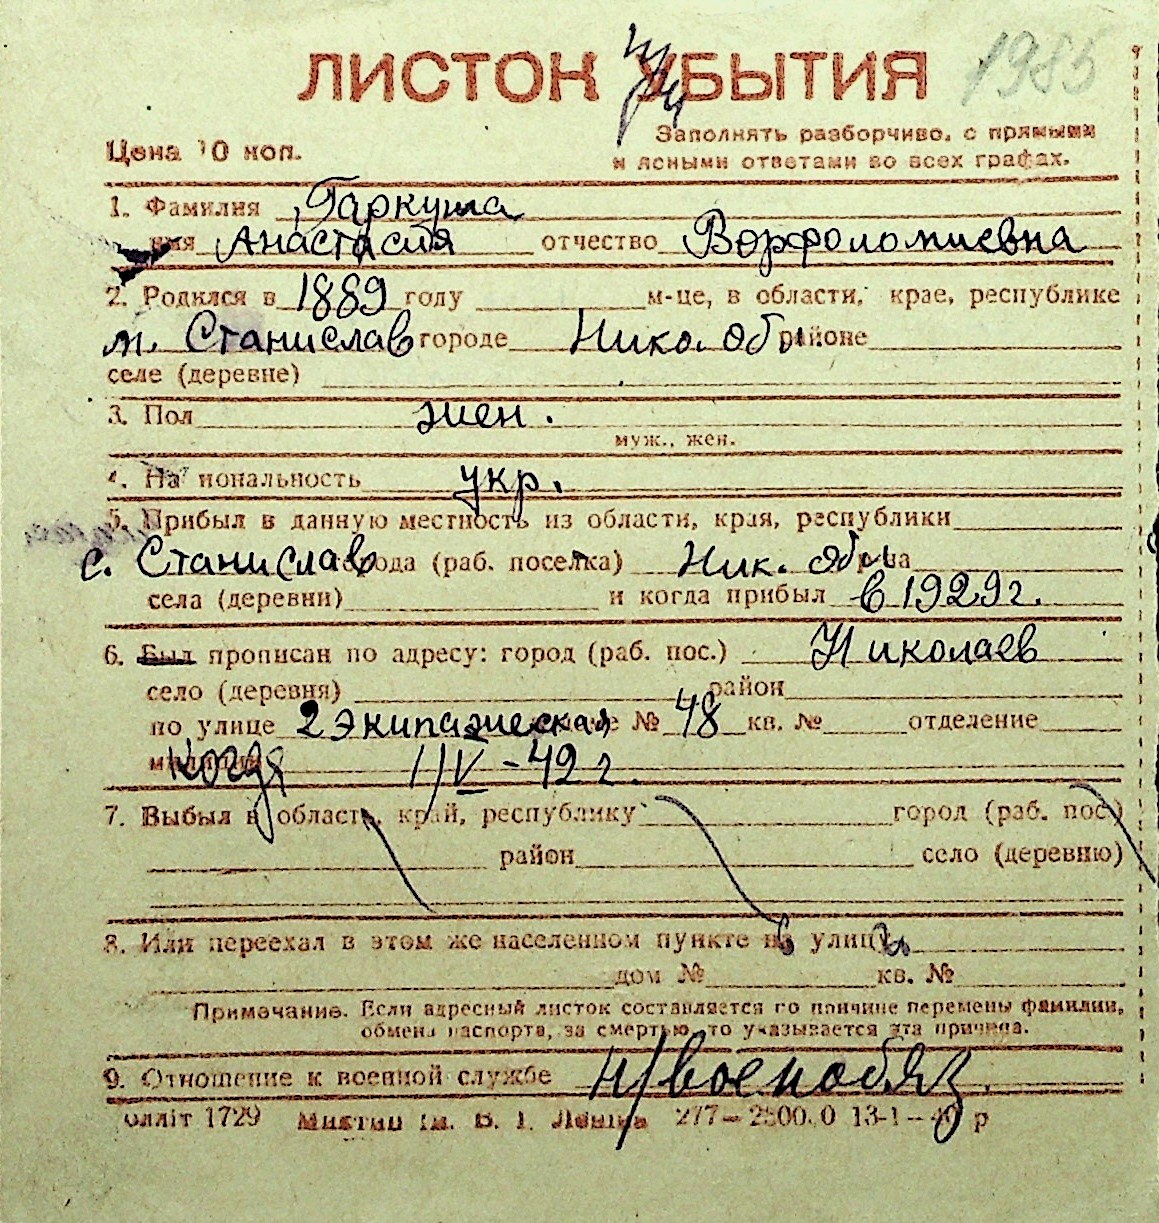 ЛИСТОК УБЫТИЯ 1985
Цена 10 коп.
Заполнять разборчиво, с прямыми
и ясными ответами во всех графах.
1. Фамилия Гаркуша
имя Анастасия отчество Ворфоломиевна
2. Родился в 1889 году м-це, в области, крае, республике
м. Станислав городе Нико. обл районе
селе (деревне)
3. Пол жен.
муж., жен.
4. Национальность укр.
5. Прибыл в данную местность из области, края, республики
с. Станислав города (раб. поселка) Ник. обл
села (деревни) и когда прибыл в 1929 г.
6. Был прописан по адресу: город (раб. пос.) Николаев
село (деревня) район
по улице 2 Экипажеская № 48 кв. № отделение
милиции когда 1/IV - 42 г.
7. Выбыл в область, край, республику город (раб. пос.)
район село (деревню)
8. Или переехал в этом же населенном пункте на улицу
дом № кв. №
Примечание. Если адресный листок составляется по причине перемены фамилии,
обмена паспорта, за смертью, то указывается эта причина.
9. Отношение к военной службе н/военнобяз.
олліт 1729 ім. В. І. Леніна 277—2500.0 13-1—40 р